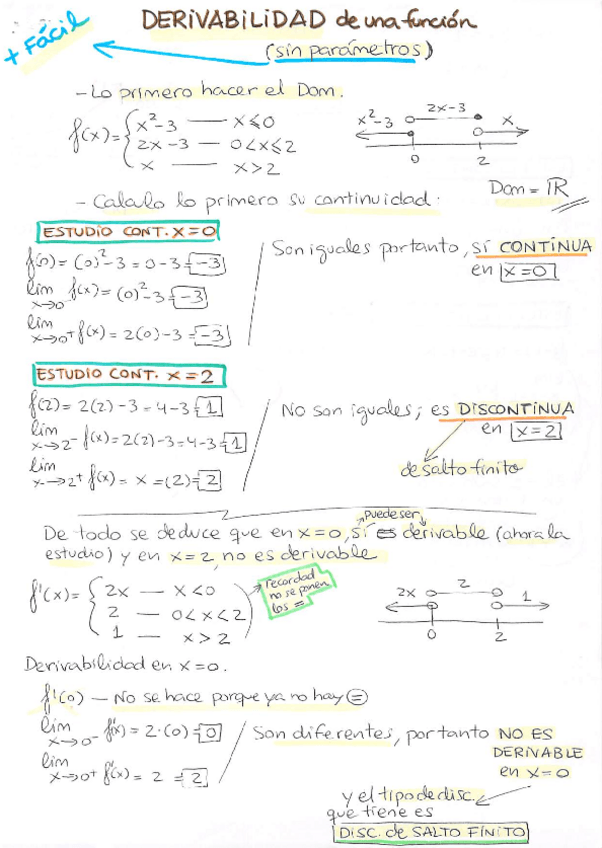 + Fácil
DERIVABILIDAD de una función
(sin parámetros)
- Lo primero hacer el Dom.
f(x)= { x²-3 — x≤0
2x-3 — 0<x≤2
x — x>2
x²-3 2x-3 x
0 2
Dom = ℝ
- Calculo lo primero su continuidad:
ESTUDIO CONT. x=0
f(0) = (0)²-3 = 0-3 = -3
lim x→0⁻ f(x) = (0)²-3 = -3
lim x→0⁺ f(x) = 2(0)-3 = -3
Son iguales por tanto, sí CONTINUA
en x=0
ESTUDIO CONT. x=2
f(2) = 2(2)-3 = 4-3 = 1
lim x→2⁻ f(x) = 2(2)-3 = 4-3 = 1
lim x→2⁺ f(x) = x = (2) = 2
No son iguales; es DISCONTINUA
en x=2
de salto finito
puede ser
De todo se deduce que en x=0, sí es derivable (ahora la
estudio) y en x=2, no es derivable
f'(x) = { 2x — x<0
2 — 0<x<2
1 — x>2
recordad
no se ponen
los =
2x 2 1
0 2
Derivabilidad en x=0.
f'(0) — No se hace porque ya no hay =
lim x→0⁻ f'(x) = 2·(0) = 0
lim x→0⁺ f'(x) = 2 = 2
Son diferentes, por tanto NO ES
DERIVABLE
en x=0
y el tipo de disc.
que tiene es
DISC. de SALTO FINITO